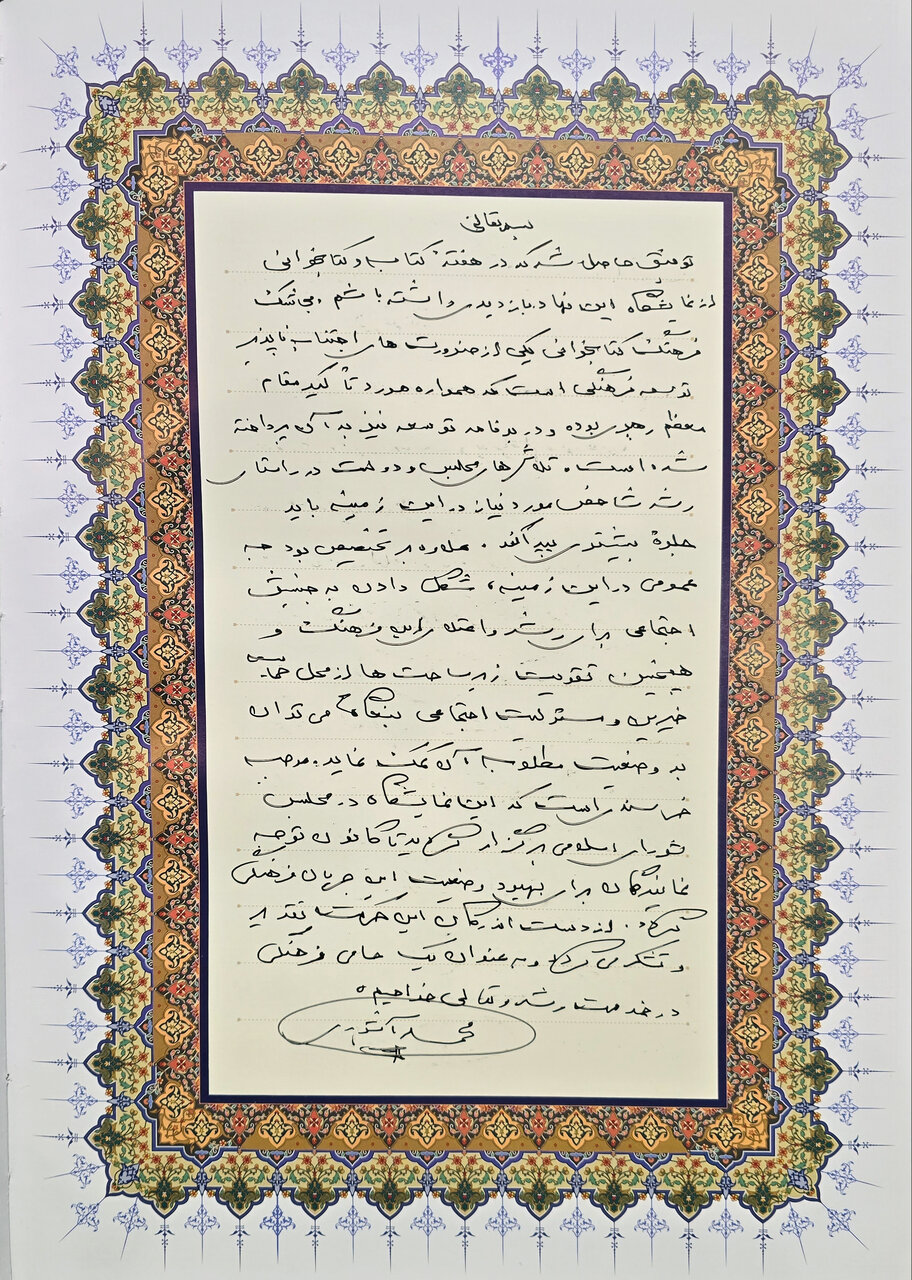 بسمه تعالی
توفیق حاصل شد که در هفته کتاب و کتابخوانی
از نمایشگاه این نهاد بازدیدی داشته باشم. بی شک
فرهنگ کتابخوانی یکی از ضرورت های اجتناب ناپذیر
توسعه فرهنگی است که همواره مورد تأکید مقام
معظم رهبری بوده و در برنامه توسعه نیز به آن پرداخته
شده است. تلاش های مجلس و دولت در راستای
رشد شاخص مورد نیاز در این زمینه باید
جلوۀ بیشتری پیدا کند. علاوه بر تخصیص بودجه
عمومی در این زمینه، شکل دادن به جنبش
اجتماعی برای رشد و اعتلای این فرهنگ و
همچنین تقویت زیرساخت ها از محل حمایت
خیرین و مسئولیت اجتماعی بنگاهها می تواند
به وضعیت مطلوب آن کمک نماید. موجب
خرسندی است که این نمایشگاه در مجلس
شورای اسلامی برگزار گردید تا کانون توجه
نمایندگان برای بهبود وضعیت این جریان فرهنگی
گردد. از دست اندرکاران این حرکت تقدیر
و تشکر می کنم و به عنوان یک حامی فرهنگی
در خدمت رشد و تعالی خواهیم
محمد